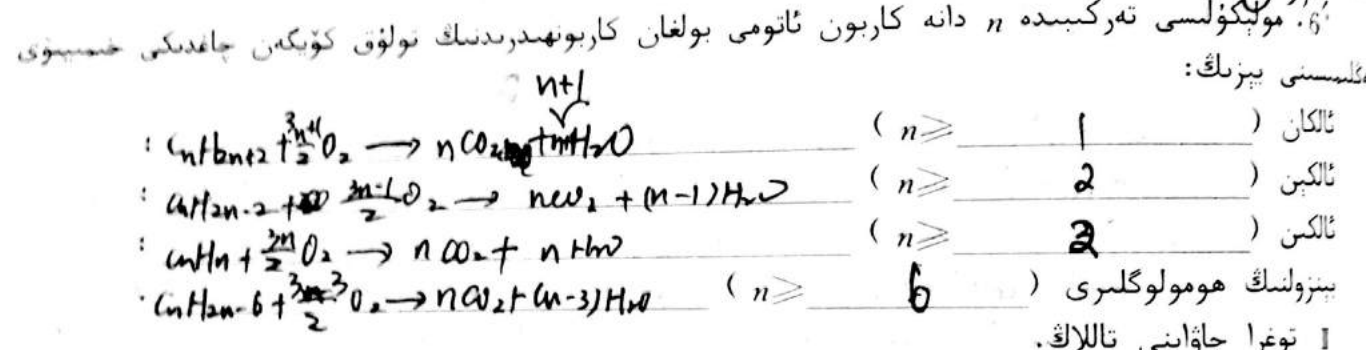 6. مولېكۇلىسى تەركىبىدە n دانە كاربون ئاتومى بولغان كاربونھىدرىدنىڭ تولۇق كۆيگەن چاغدىكى خىمىيىۋى
تەڭلىمىسىنى يېزىڭ:
ئالكان ( n⩾ 1 ) : CnH2n+2 + 3n+1/2 O2 → nCO2 + n+1 H2O
ئالكېن ( n⩾ 2 ) : CnH2n-2 + 3n-1/2 O2 → nCO2 + (n-1)H2O
ئالكىن ( n⩾ 2 ) : CnHn + 3n/2 O2 → nCO2 + nH2O
بېنزولنىڭ ھومولوگلىرى ( n⩾ 6 ) CnH2n-6 + 3n-3/2 O2 → nCO2 + (n-3)H2O
توغرا جاۋابنى تاللاڭ.